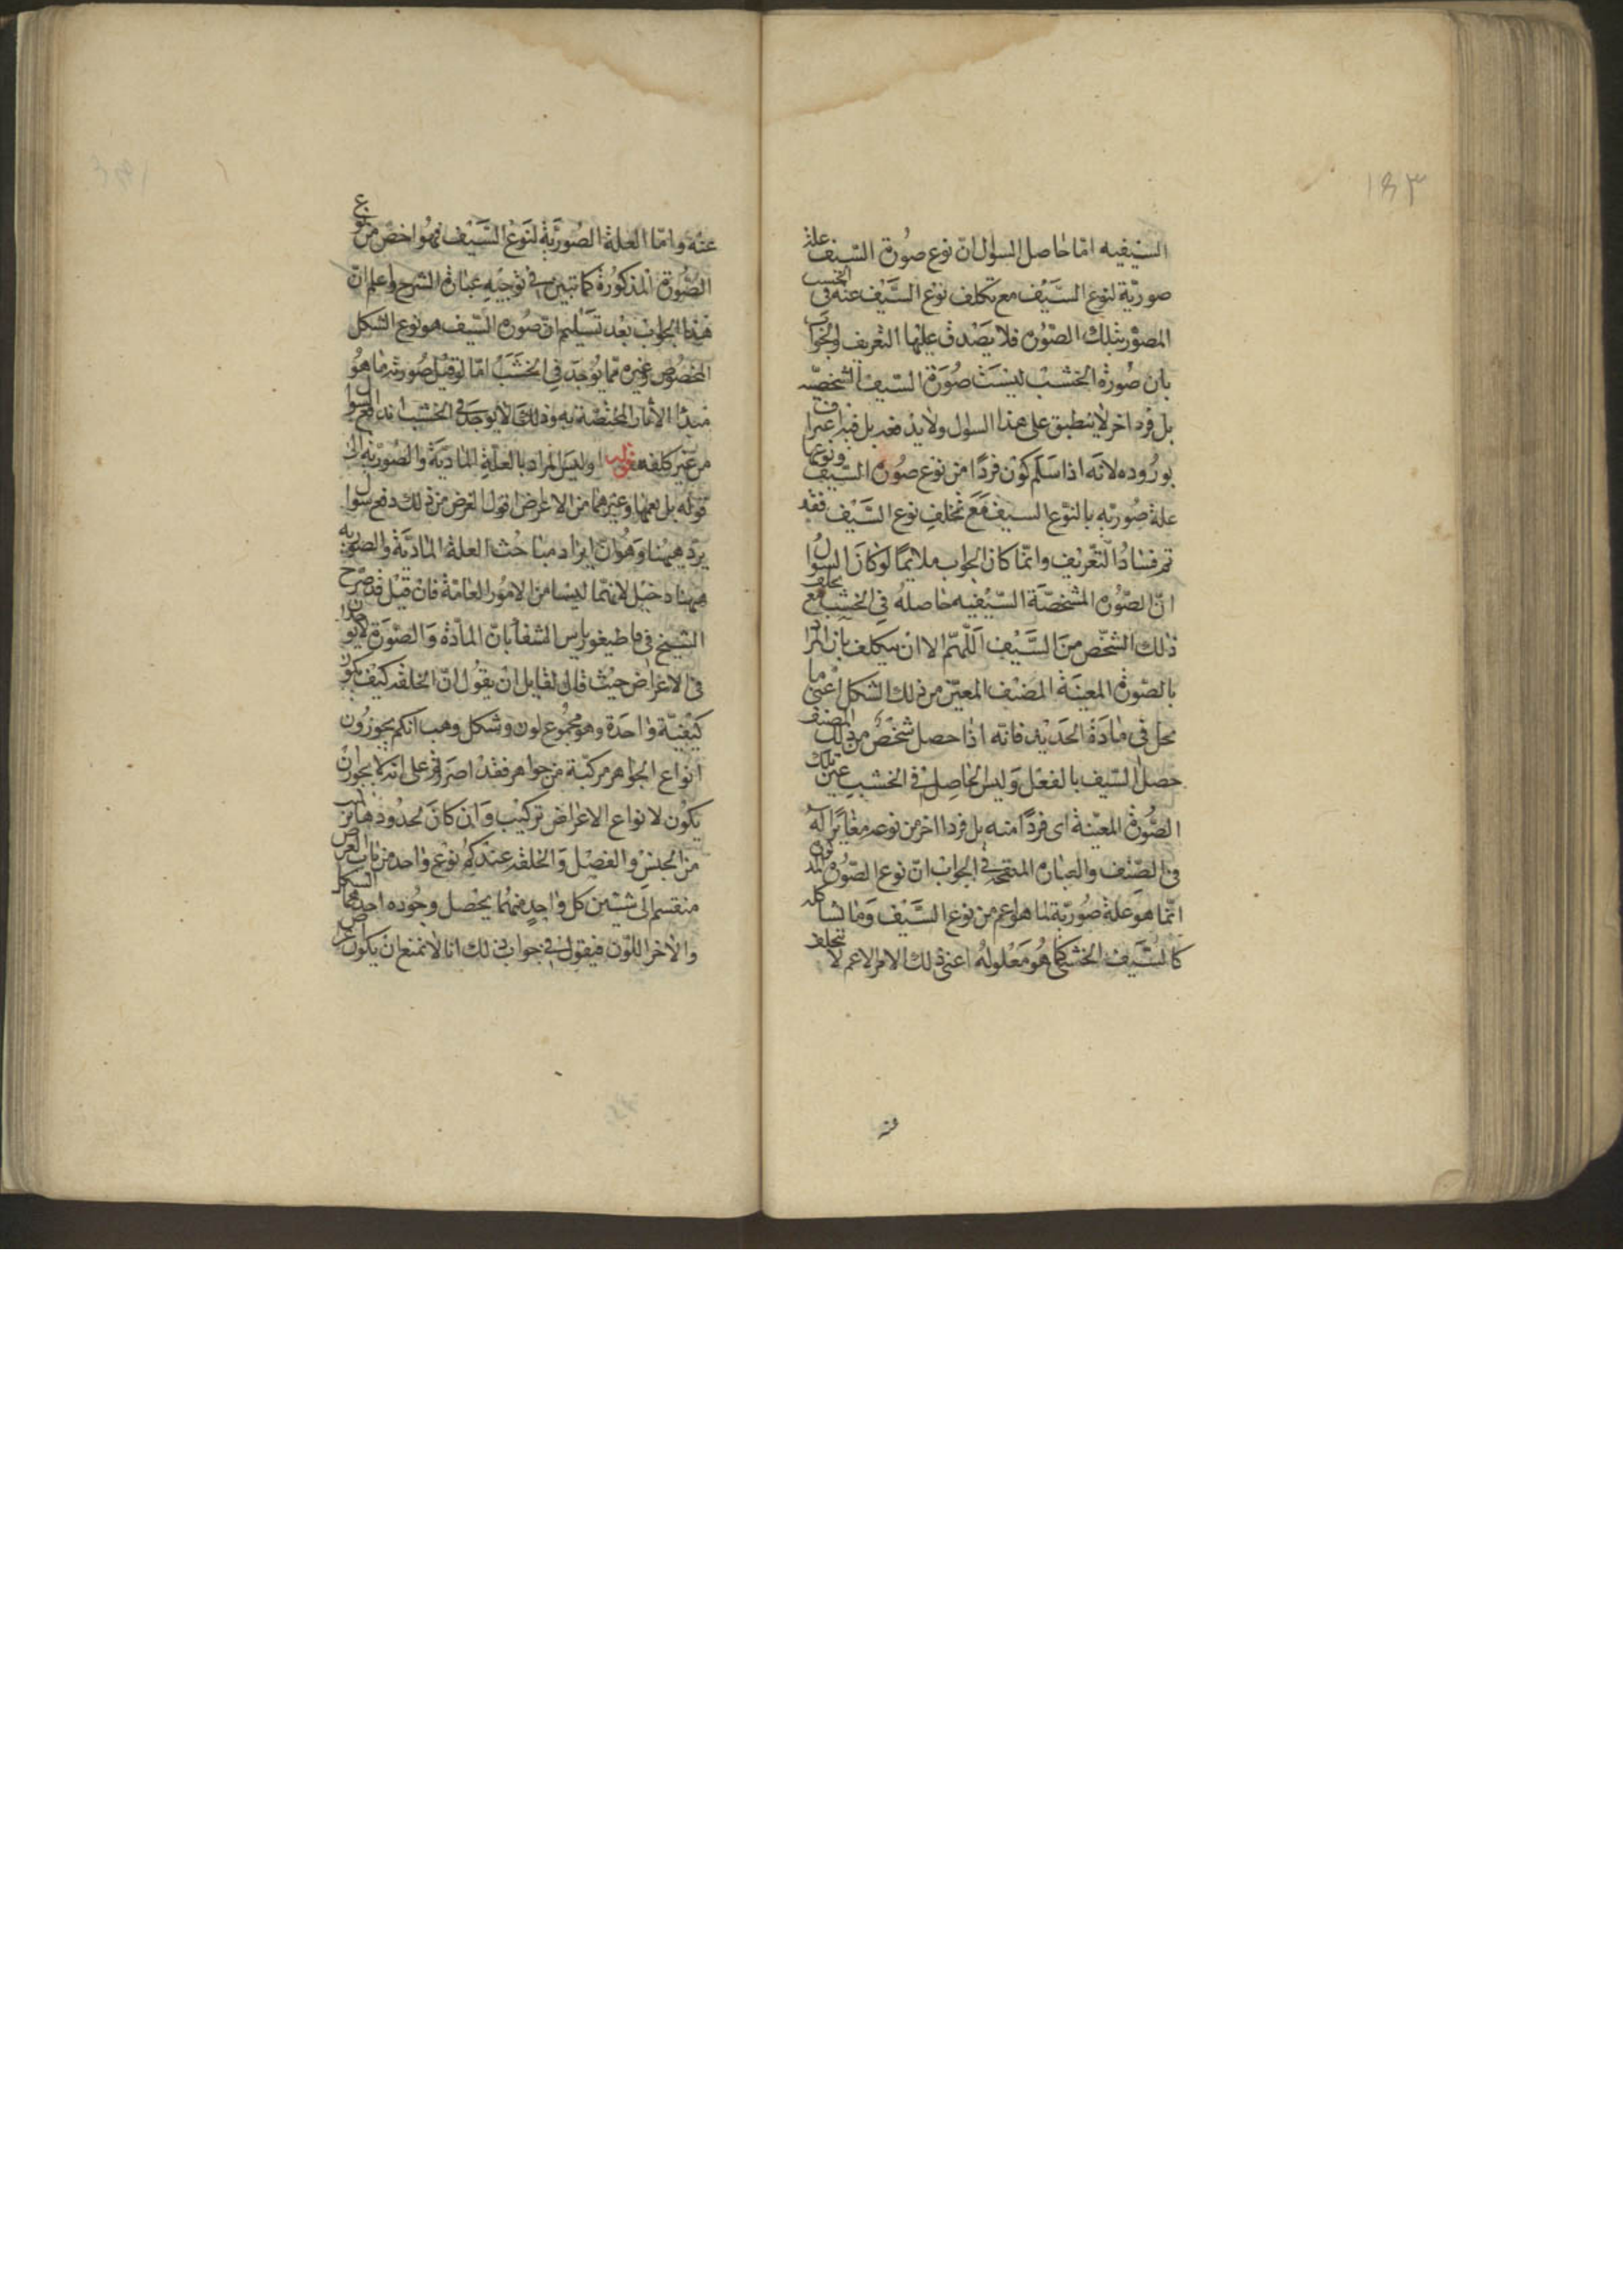 ١٤٣
السيفيه امّا حاصل السؤل انّ نوع صورة السّيف علة
صوريّة لنوع السَّيْف مع تخلف نوع السَّيْف عنه فى الخشب
المصوّر بتلك الصّورة فلا يصْدق عليها التعريف والجواب
بان صُورة الخشب ليست صُورَة السّيف الشخصيّه
بل فرد اخر لا ينطبق على هذا السؤل ولا يدفعه بل فيه اعتراف
بوُروده لانّه اذا سلّم كون فردًا من نوع صورة السّيف ونوعها
علة صُوريّه بالنوع السيف مَعَ تخلفِ نوع السَّيْف فقد
تم فسادُ التّعْريف وانّما كان الجواب ملايمًا لو كانَ السؤال
انّ الصّورة المشخصّة السّيْفيه حاصله فى الخشب مع تخلف
ذلك الشخّص منَ السَّيْف اللّهمّ الا ان يتكلف بان المراد
بالصّورة المعينة الصنف المعيّن من ذلك الشكل اعنى ما
يحل فى مادّة الحَديد فانه اذا حصل شخصٌ من ذلك الصنف
حصل السّيف بالفعْل وَليس الحاصِل فى الخشبِ عين تلك
الصّورة المعيّنة اى فردًا منه بل فردا اخر من نوعه مغايرًا له
فى الصّنف والعبارة المنقحة فى الجواب انّ نوع الصّورة المذكورة
انّما هو علة صُوريّة لما هو اعم من نوع السَّيْف وَما شاكله
كالسَّيف الخشبى كما هُوَ مَعْلولهُ اعنى ذلك الامر الاعم لا يتخلف
عنه
عنْه وامّا العلة الصُوريَّة لنَوع السَّيْف فهو اخصّ من نوع
الصُّورة المذكورة كما تبين فى توجيه عبارة الشرح واعلم انّ
هذا الجواب بعْد تسَليم انّ صُورة السّيف هو نوع الشكل
المخصُوص وغيره ممّا يُوجد فى الخشَب امّا لو قيل صُورته ما هو
مبدأ الآثار المختصّة به وذلك ممّا لا يوجد فى الخشب اندفع السؤال
من غير كلفه قوله وليسَ المراد بالعلّةِ الماديّة والصّوريّه الى
قوله بل يعمها وغيرهما من الاعراض اقول الغرض من ذلك دفع سؤال
يرد هيهنا وَهُو انّ ايراد مباحث العلة الماديّة والصوريّه
هيهنا دخيل لانهما ليسا من الامُور العَامّة فان قيل قد صرّح
الشيخ فى قاطيغورياس الشفا بانّ المادّة وَالصّورَة لا يوجدان
فى الاعراض حيث قال لقايل ان يقول انّ الخلقه كيف تكون
كيفيّة واحدة وهو مجموع لون وشكل وهب انكم تجوزُون
انواع الجواهر مركبّة من جواهر فقدْ اصررتم على انه لا يجوز ان
يكون لانواع الاعراض تركيب وَان كانَ لحدُودها تركيب
من الجنس والفصْل وَالخلقه عندكم نوع واحد من باب العرض
منقسم الى شيئين كل واحدٍ منهُما يحْصل وجُوده احدهما الشكل
والاخر اللّون فيقول فى جواب ذلك انا لا نمنع ان يكون عرض